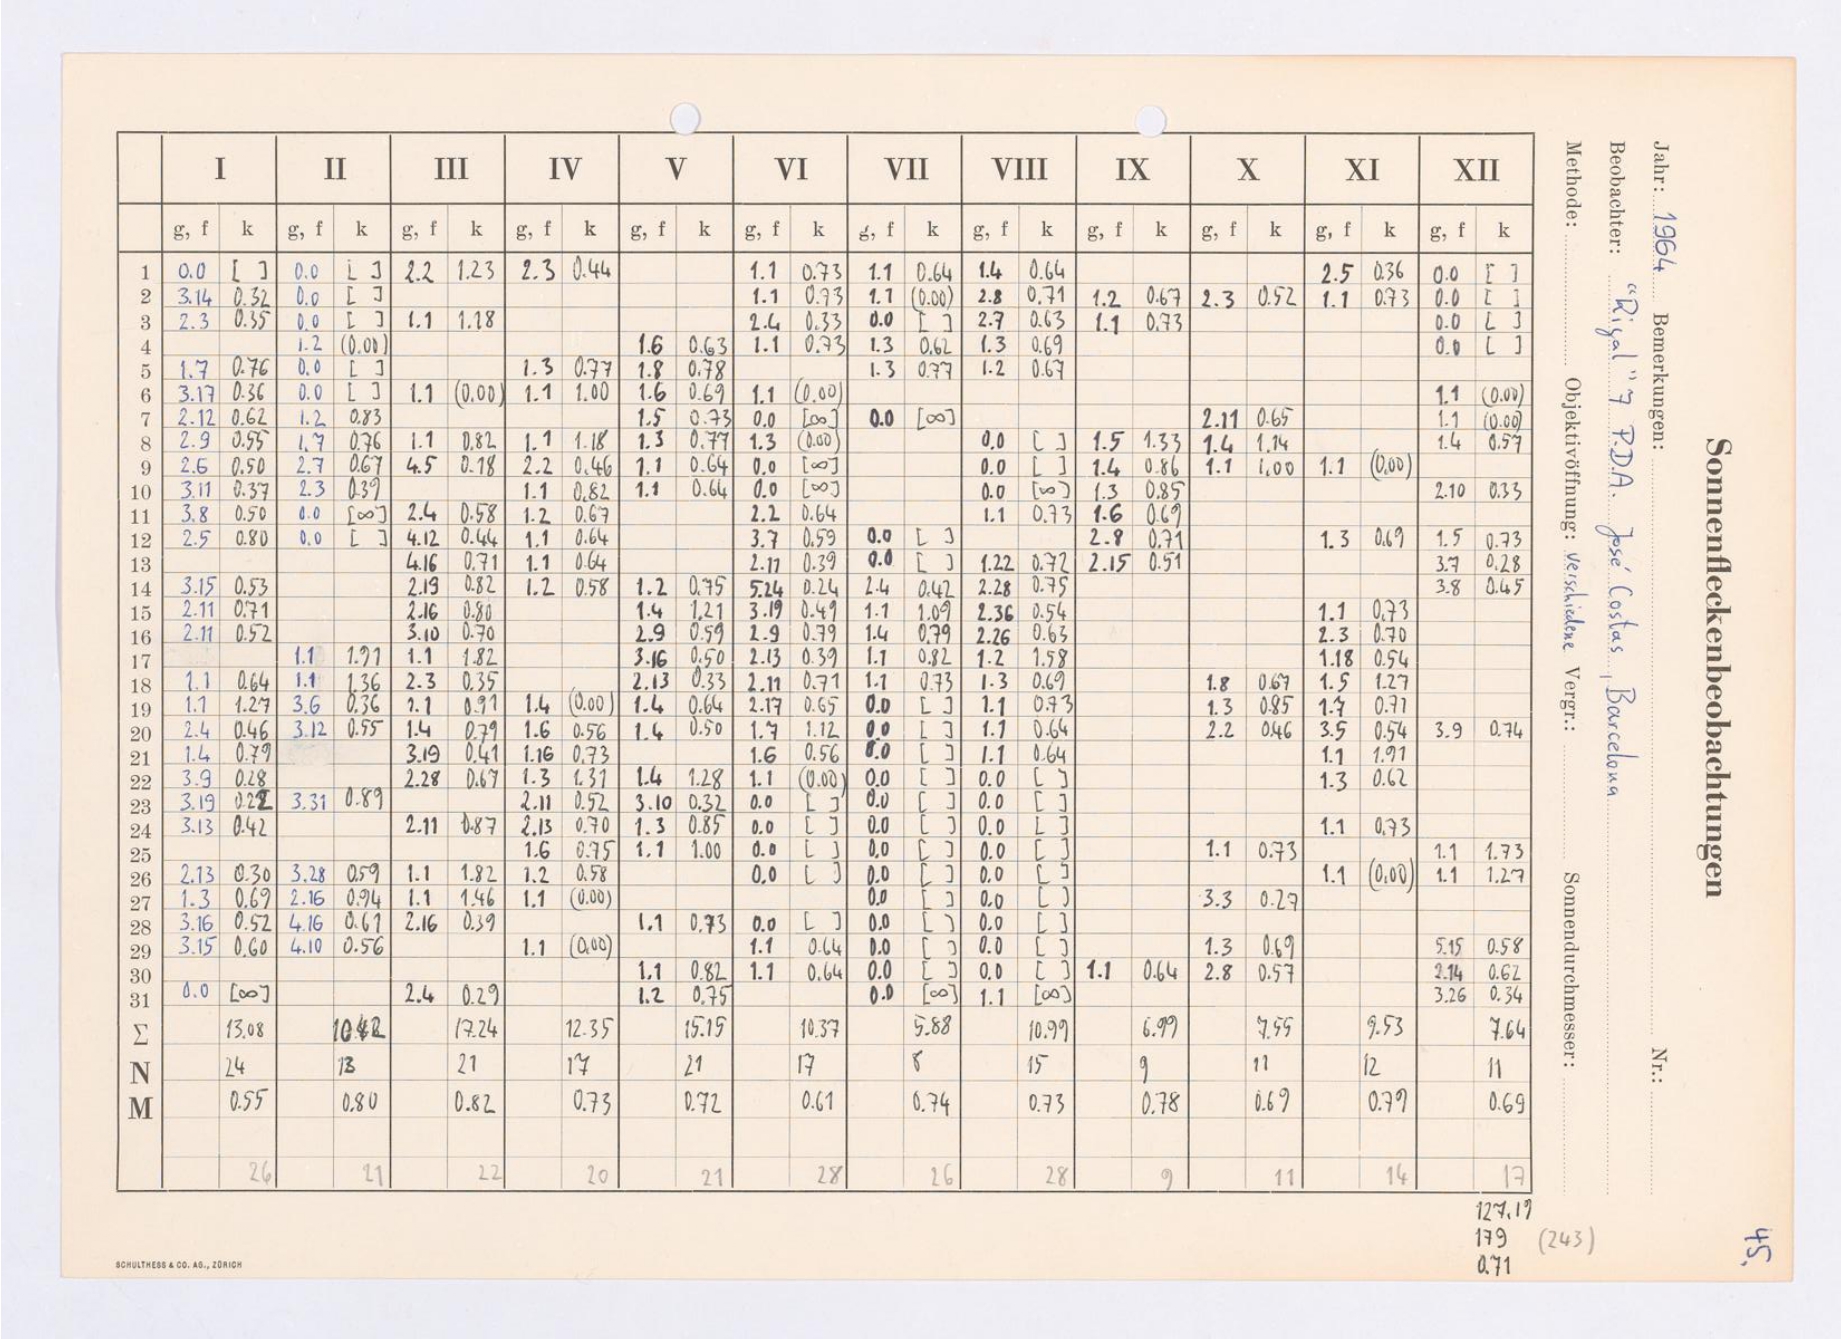 Sonnenfleckenbeobachtungen
Jahr: 1964 Bemerkungen: Nr.:
Beobachter: "Rigal" 7 P.D.A. José Costas, Barcelona
Methode: Objektivöffnung: verschiedene Vergr.: Sonnendurchmesser:
I II III IV V VI VII VIII IX X XI XII
g, f k g, f k g, f k g, f k g, f k g, f k g, f k g, f k g, f k g, f k g, f k g, f k
1 0.0 [ ] 0.0 [ ] 2.2 1.23 2.3 0.44 1.1 0.73 1.1 0.64 1.4 0.64 2.5 0.36 0.0 [ ]
2 3.14 0.32 0.0 [ ] 1.1 0.73 1.1 (0.00) 2.8 0.71 1.2 0.67 2.3 0.52 1.1 0.73 0.0 [ ]
3 2.3 0.35 0.0 [ ] 1.1 1.18 2.4 0.33 0.0 [ ] 2.7 0.63 1.1 0.73 0.0 [ ]
4 1.2 (0.00) 1.6 0.63 1.1 0.73 1.3 0.62 1.3 0.69 0.0 [ ]
5 1.7 0.76 0.0 [ ] 1.3 0.77 1.8 0.78 1.3 0.77 1.2 0.67
6 3.17 0.36 0.0 [ ] 1.1 (0.00) 1.1 1.00 1.6 0.69 1.1 (0.00) 1.1 (0.00)
7 2.12 0.62 1.2 0.83 1.5 0.73 0.0 [∞] 0.0 [∞] 2.11 0.65 1.1 (0.00)
8 2.9 0.55 1.7 0.76 1.1 0.82 1.1 1.18 1.3 0.77 1.3 (0.00) 0.0 [ ] 1.5 1.33 1.4 1.14 1.4 0.57
9 2.6 0.50 2.7 0.67 4.5 0.18 2.2 0.46 1.1 0.64 0.0 [∞] 0.0 [ ] 1.4 0.86 1.1 1.00 1.1 (0.00)
10 3.11 0.37 2.3 0.39 1.1 0.82 1.1 0.64 0.0 [∞] 0.0 [∞] 1.3 0.85 2.10 0.33
11 3.8 0.50 0.0 [∞] 2.4 0.58 1.2 0.67 2.2 0.64 1.1 0.73 1.6 0.69
12 2.5 0.80 0.0 [ ] 4.12 0.44 1.1 0.64 3.7 0.59 0.0 [ ] 2.8 0.71 1.3 0.69 1.5 0.73
13 4.16 0.71 1.1 0.64 2.11 0.39 0.0 [ ] 1.22 0.72 2.15 0.51 3.7 0.28
14 3.15 0.53 2.19 0.82 1.2 0.58 1.2 0.75 5.24 0.24 2.4 0.42 2.28 0.75 3.8 0.45
15 2.11 0.71 2.16 0.80 1.4 1.21 3.19 0.49 1.1 1.09 2.36 0.54 1.1 0.73
16 2.11 0.52 3.10 0.70 2.9 0.59 2.9 0.79 1.4 0.79 2.26 0.63 2.3 0.70
17 1.1 1.91 1.1 1.82 3.16 0.50 2.13 0.39 1.1 0.82 1.2 1.58 1.18 0.54
18 1.1 0.64 1.1 1.36 2.3 0.35 2.13 0.33 2.11 0.71 1.1 0.73 1.3 0.69 1.8 0.67 1.5 1.27
19 1.1 1.27 3.6 0.36 1.1 0.91 1.4 (0.00) 1.4 0.64 2.17 0.65 0.0 [ ] 1.1 0.73 1.3 0.85 1.7 0.71
20 2.4 0.46 3.12 0.55 1.4 0.79 1.6 0.56 1.4 0.50 1.7 1.12 0.0 [ ] 1.1 0.64 2.2 0.46 3.5 0.54 3.9 0.74
21 1.4 0.79 3.19 0.41 1.16 0.73 1.6 0.56 0.0 [ ] 1.1 0.64 1.1 1.91
22 3.9 0.28 2.28 0.67 1.3 1.31 1.4 1.28 1.1 (0.00) 0.0 [ ] 0.0 [ ] 1.3 0.62
23 3.19 0.22 3.31 0.89 2.11 0.52 3.10 0.32 0.0 [ ] 0.0 [ ] 0.0 [ ]
24 3.13 0.42 2.11 0.87 2.13 0.70 1.3 0.85 0.0 [ ] 0.0 [ ] 0.0 [ ] 1.1 0.73
25 1.6 0.75 1.1 1.00 0.0 [ ] 0.0 [ ] 0.0 [ ] 1.1 0.73 1.1 1.73
26 2.13 0.30 3.28 0.59 1.1 1.82 1.2 0.58 0.0 [ ] 0.0 [ ] 0.0 [ ] 1.1 (0.00) 1.1 1.27
27 1.3 0.69 2.16 0.94 1.1 1.46 1.1 (0.00) 0.0 [ ] 0.0 [ ] 3.3 0.27
28 3.16 0.52 4.16 0.61 2.16 0.39 1.1 0.73 0.0 [ ] 0.0 [ ] 0.0 [ ]
29 3.15 0.60 4.10 0.56 1.1 (0.00) 1.1 0.64 0.0 [ ] 0.0 [ ] 1.3 0.69 5.15 0.58
30 1.1 0.82 1.1 0.64 0.0 [ ] 0.0 [ ] 1.1 0.64 2.8 0.57 2.14 0.62
31 0.0 [∞] 2.4 0.29 1.2 0.75 0.0 [∞] 1.1 [∞] 3.26 0.34
Σ 13.08 10.42 17.24 12.35 15.15 10.37 5.88 10.99 6.99 7.55 9.53 7.64
N 24 13 21 17 21 17 8 15 9 11 12 11
M 0.55 0.80 0.82 0.73 0.72 0.61 0.74 0.73 0.78 0.69 0.79 0.69
26 21 22 20 21 28 26 28 9 11 14 17
127.19
179 (243)
0.71
45.
SCHULTHESS & CO. AG., ZÜRICH